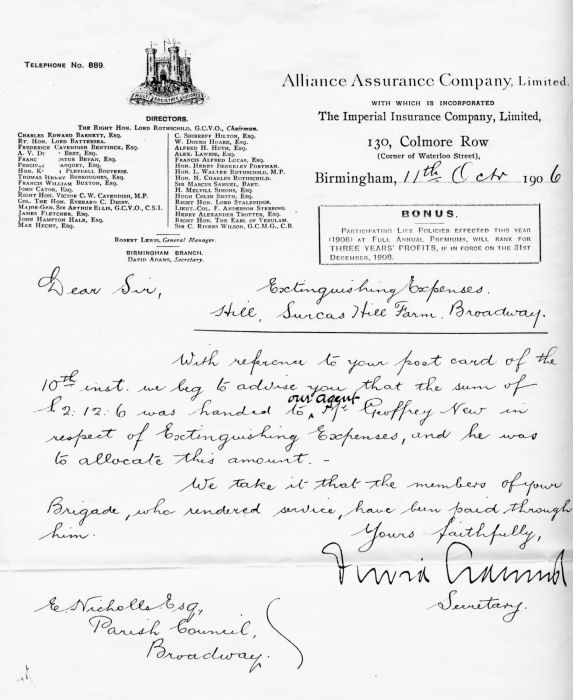 TELEPHONE NO. 889.
Alliance Assurance Company, Limited.
WITH WHICH IS INCORPORATED
The Imperial Insurance Company, Limited,
130, Colmore Row
(Corner of Waterloo Street),
Birmingham, 11th Octr 1906
DIRECTORS.
The Right Hon. Lord Rothschild, G.C.V.O., Chairman.
Charles Edward Barnett, Esq.
Rt. Hon. Lord Battersea.
Frederick Cavendish Bentinck, Esq.
A. V. D Best, Esq.
Franc Bevan, Esq.
Percival Esq.
Hon. K Pleydell Bouverie.
Thomas Henry Burroughes, Esq.
Francis William Buxton, Esq.
John Cator, Esq.
Right Hon. Victor C. W. Cavendish, M.P.
Col. The Hon. Everard C. Digby.
Major-Gen. Sir Arthur Ellis, G.C.V.O., C.S.I.
James Fletcher, Esq.
John Hampton Hale, Esq.
Max Hecht, Esq.
C. Shirreff Hilton, Esq.
W. Douro Hoare, Esq.
Alfred H. Huth, Esq.
Alex. Lawrie, Esq.
Francis Alfred Lucas, Esq.
Hon. Henry Berkeley Portman.
Hon. L. Walter Rothschild, M.P.
Hon. N. Charles Rothschild.
Sir Marcus Samuel, Bart.
H. Melvill Simons, Esq.
Hugh Colin Smith, Esq.
Right Hon. Lord Stalbridge.
Lieut.-Col. F. Anderson Stebbing.
Henry Alexander Trotter, Esq.
Right Hon. The Earl of Verulam.
Sir C. Rivers Wilson, G.C.M.G., C.B.
Robert Lewis, General Manager.
BIRMINGHAM BRANCH.
David Adams, Secretary.
BONUS.
Participating Life Policies effected this year
(1906) at Full Annual Premiums, will rank for
THREE YEARS' PROFITS, if in force on the 31st
December, 1908.
Dear Sir,
Extinguishing Expenses.
Hill, Surcas Hill Farm. Broadway.
With reference to your post card of the
10th inst. we beg to advise you that the sum of
£2:12:6 was handed to our agent Mr Geoffrey New in
respect of Extinguishing Expenses, and he was
to allocate this amount. -
We take it that the members of your
Brigade, who rendered service, have been paid through
him.
Yours faithfully,
David Adams
Secretary.
E. Nicholls Esq,
Parish Council,
Broadway.